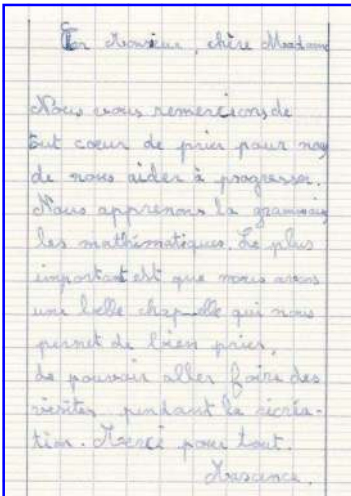 Monsieur, chère Madame
Nous vous remercions de
tout coeur de prier pour nous
de nous aider à progresser.
Nous apprenons la grammaire
les mathématiques. Le plus
important est que nous avons
une belle chapelle qui nous
permet de bien prier,
de pouvoir aller faire des
visites pendant la récréa-
tion. Merci pour tout.